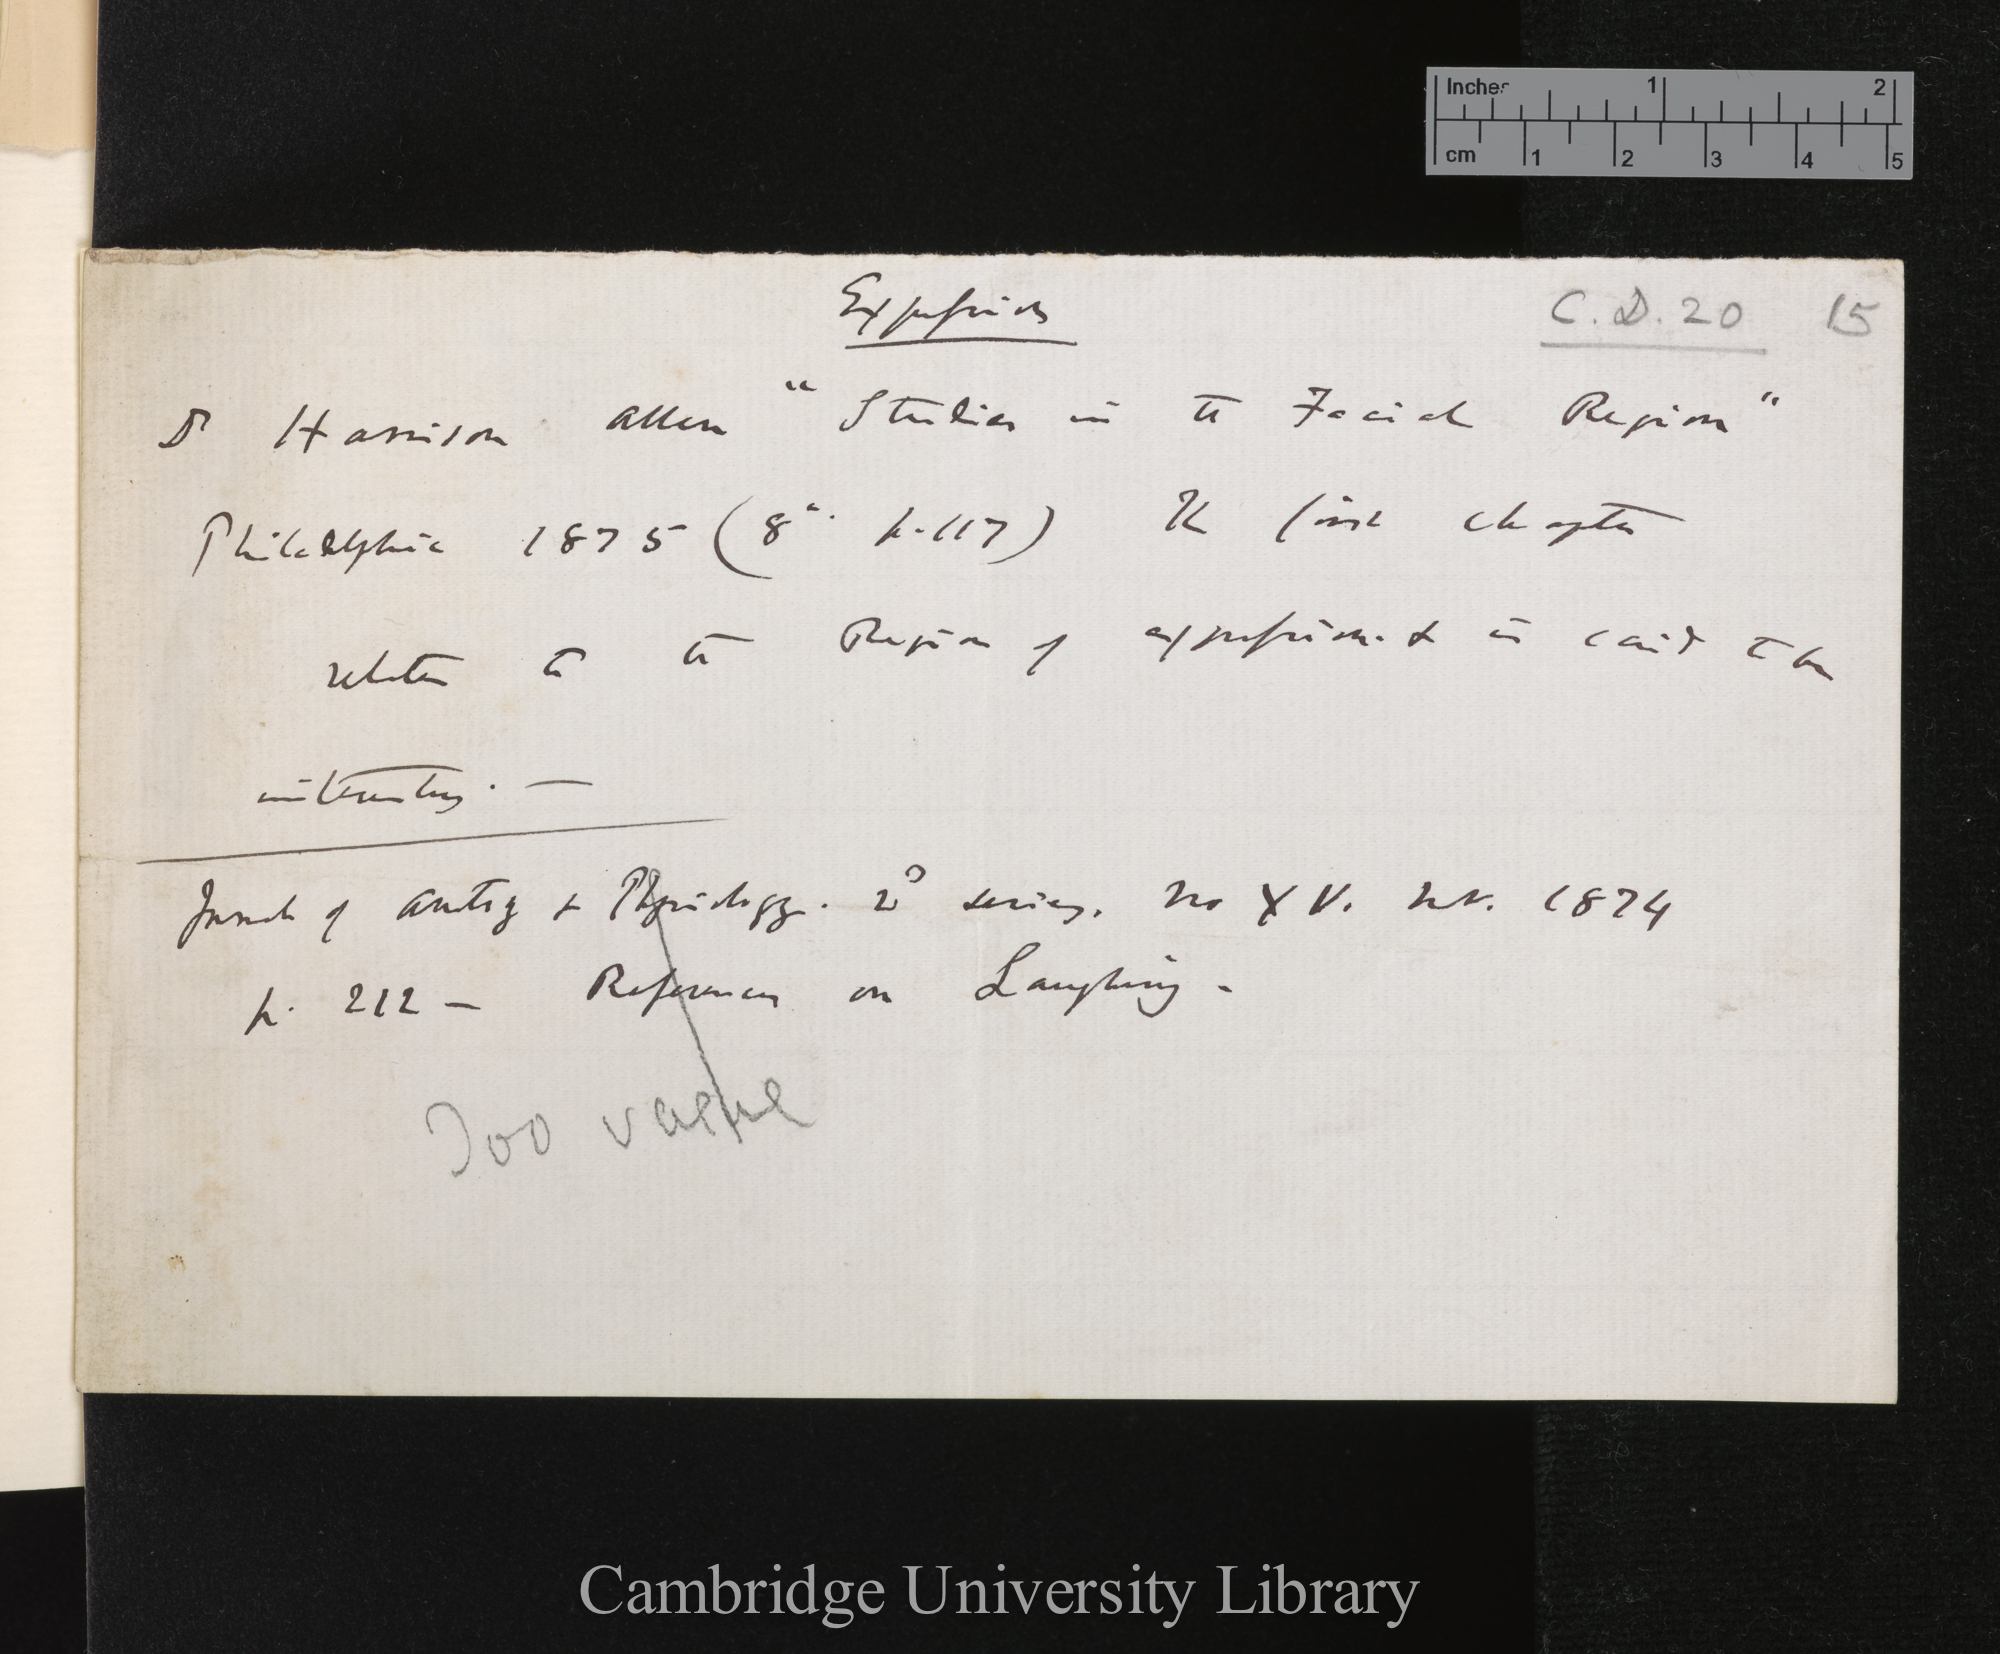 Inches 1 2
cm 1 2 3 4 5
Expression
C. D. 20 15
Dr Harrison Allen "Studies in the Facial Region"
Philadelphia 1875 (8vo. p. 117) The first chapter
relates to the Region of expression & is said to be
interesting. —
Journal of Anatomy & Physiology. 2d series. No XV. Nov. 1874
p. 212 — References on Laughing -
Too vague
Cambridge University Library